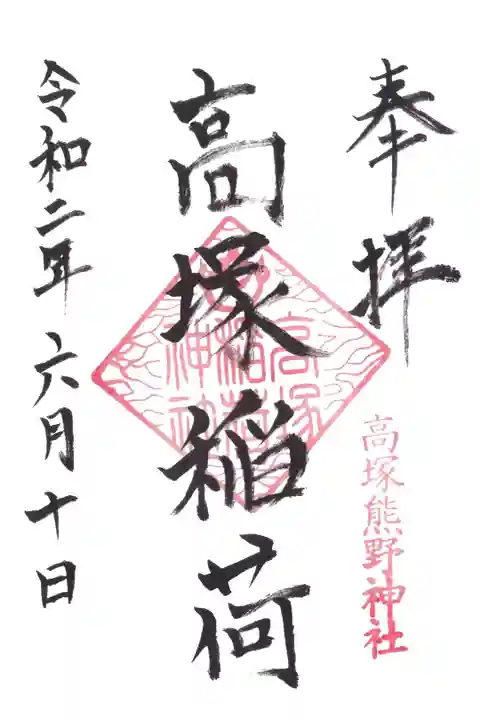 奉拝
高塚熊野神社
高塚稲荷
高塚
稲荷
神社
令和二年六月十日